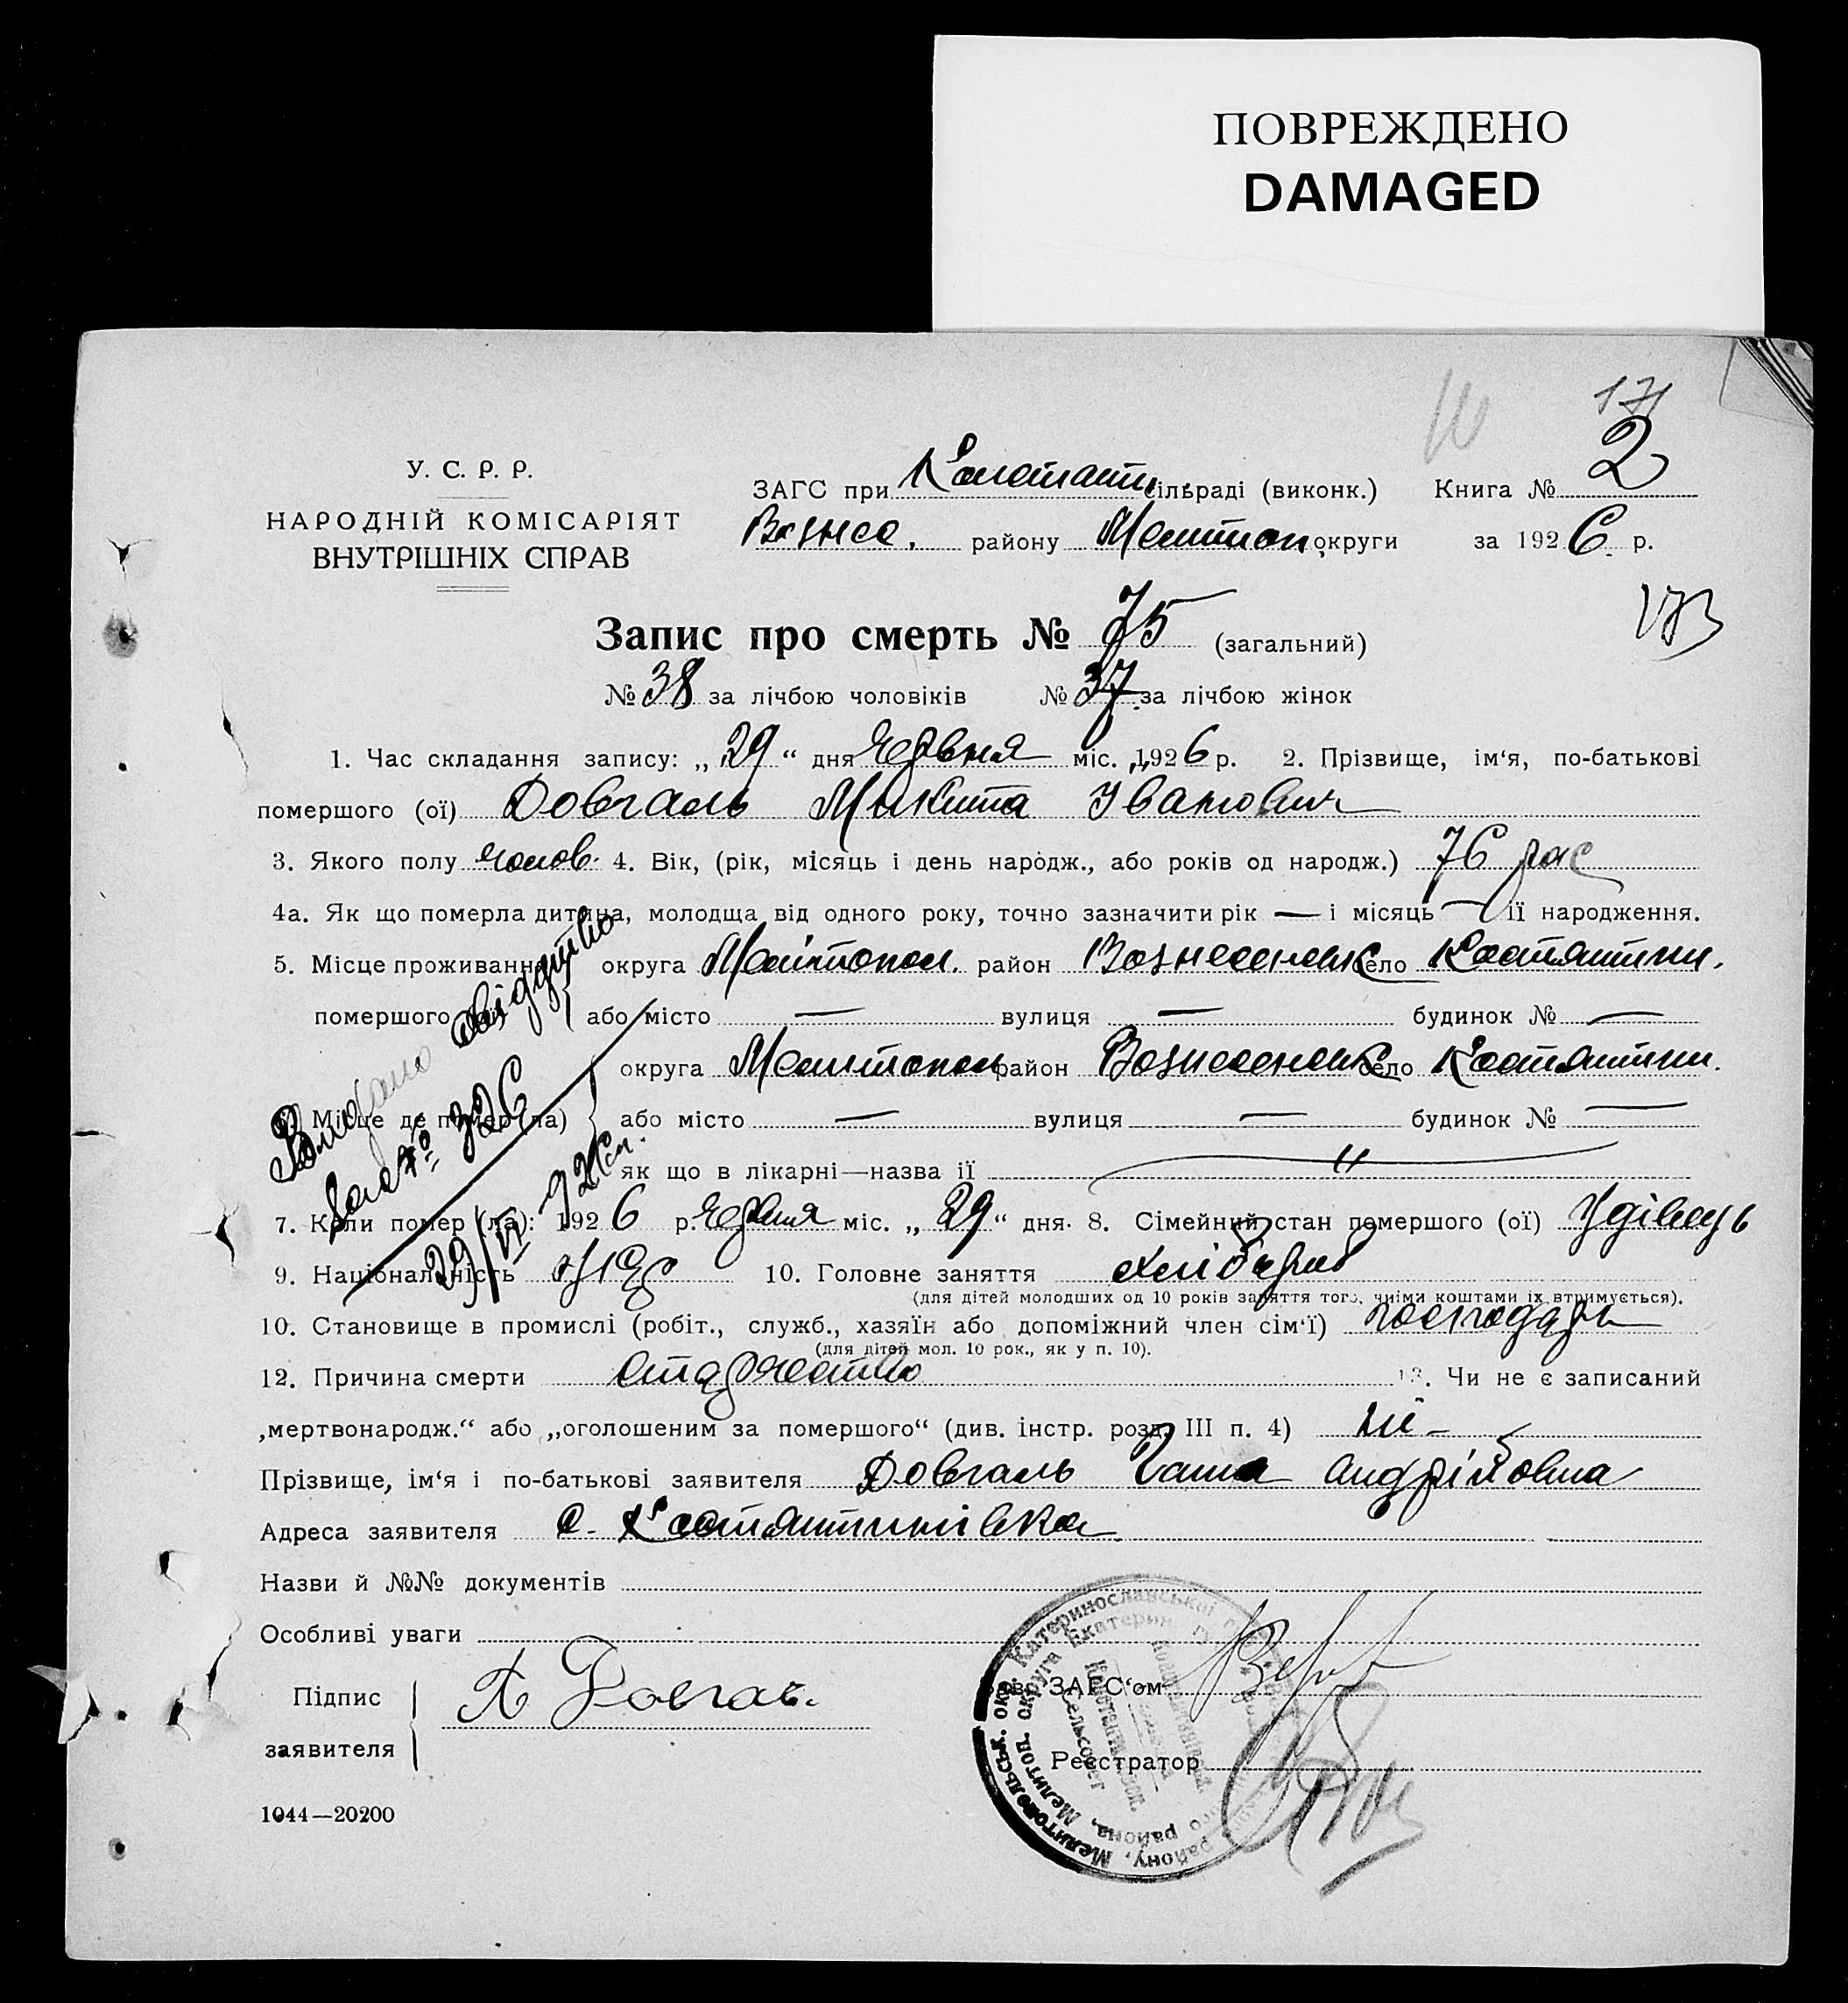 ПОВРЕЖДЕНО
DAMAGED
171
У. С. Р. Р.
НАРОДНІЙ КОМІСАРІЯТ
ВНУТРІШНІХ СПРАВ
ЗАГС при Констант. сільраді (виконк.) Книга № 2
Вознес. району Меліто́п. округи за 1926 р.
173
Запис про смерть № 75 (загальний)
№ 38 за лічбою чоловіків № 37 за лічбою жінок
1. Час складання запису: „29“ дня Червня міс. 1926 р. 2. Прізвище, ім‘я, по-батькові
помершого (ої) Довгаль Микита Іванович
3. Якого полу чолов. 4. Вік, (рік, місяць і день народж., або років од народж.) 76 рок
4а. Як що померла дитина, молодща від одного року, точно зазначити рік — і місяць — її народження.
5. Місце проживання округа Мелітопол. район Вознесенськ село Костянтин.
помершого або місто — вулиця — будинок № —
округа Мелитополь район Вознесенськ село Костянтин.
Місце де помер (ла) або місто — вулиця — будинок № —
як що в лікарні—назва ії "
Видано свідоцтво
за № 326
29/VI
7. Коли помер (ла): 1926 р. Червня міс. „29“ дня. 8. Сімейний стан помершого (ої) Удівець
9. Національність Укр 10. Головне заняття хлібороб
(для дітей молодших од 10 років заняття того, чиїми коштами їх втримується).
10. Становище в промислі (робіт., служб., хазяїн або допоміжний член сім‘ї) господарь
(для дітей мол. 10 рок., як у п. 10).
12. Причина смерти старчество 13. Чи не є записаний
„мертвонародж.“ або „оголошеним за помершого“ (див. інстр. розд. III п. 4) ні -
Прізвище, ім‘я і по-батькові заявителя Довгаль Ганна Андріївовна
Адреса заявителя с. Костянтинівка
Назви й №№ документів
Особливі уваги
Підпис
заявителя Довгаль
Зав. ЗАГС‘ом
Реєстратор
1044—20200